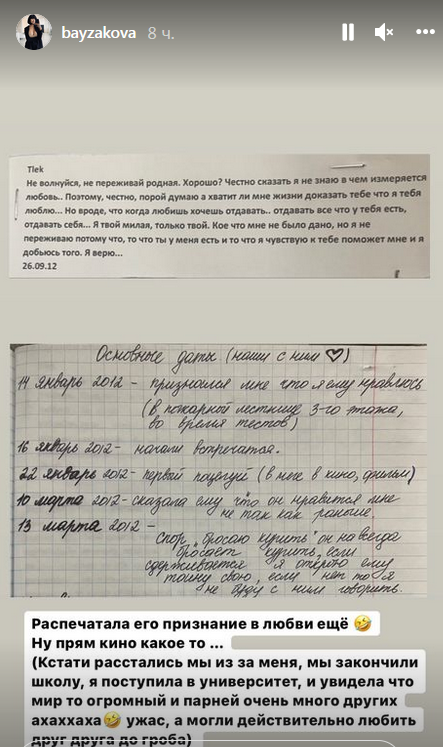 bayzakova 8 ч.
Tlek
Не волнуйся, не переживай родная. Хорошо? Честно сказать я не знаю в чем измеряется
любовь.. Поэтому, честно, порой думаю а хватит ли мне жизни доказать тебе что я тебя
люблю... Но вроде, что когда любишь хочешь отдавать.. отдавать все что у тебя есть,
отдавать себя... Я твой милая, только твой. Кое что мне не было дано, но я не
переживаю потому что, то что ты у меня есть и то что я чувствую к тебе поможет мне и я
добьюсь того. Я верю...
26.09.12
Основные даты (наши с ним ♡)
14 январь 2012 - признался мне что я ему нравлюсь
(в пожарной лестнице 3-го этажа,
во время тестов)
16 январь 2012 - начали встречатся.
22 январь 2012 - первый поцелуй (в мпе в кино, фильм)
10 марта 2012 - сказала ему что он нравится мне
не так как раньше.
13 марта 2012 -
спор "бросаю курить" он навсегда
бросает курить, если
сдерживается я открою ему
тайну свою, если нет то я
не буду с ним говорить.
Распечатала его признание в любви ещё 🤣
Ну прям кино какое то ...
(Кстати расстались мы из за меня, мы закончили
школу, я поступила в университет, и увидела что
мир то огромный и парней очень много других
ахаххаха🤣 ужас, а могли действительно любить
друг друга до гроба)